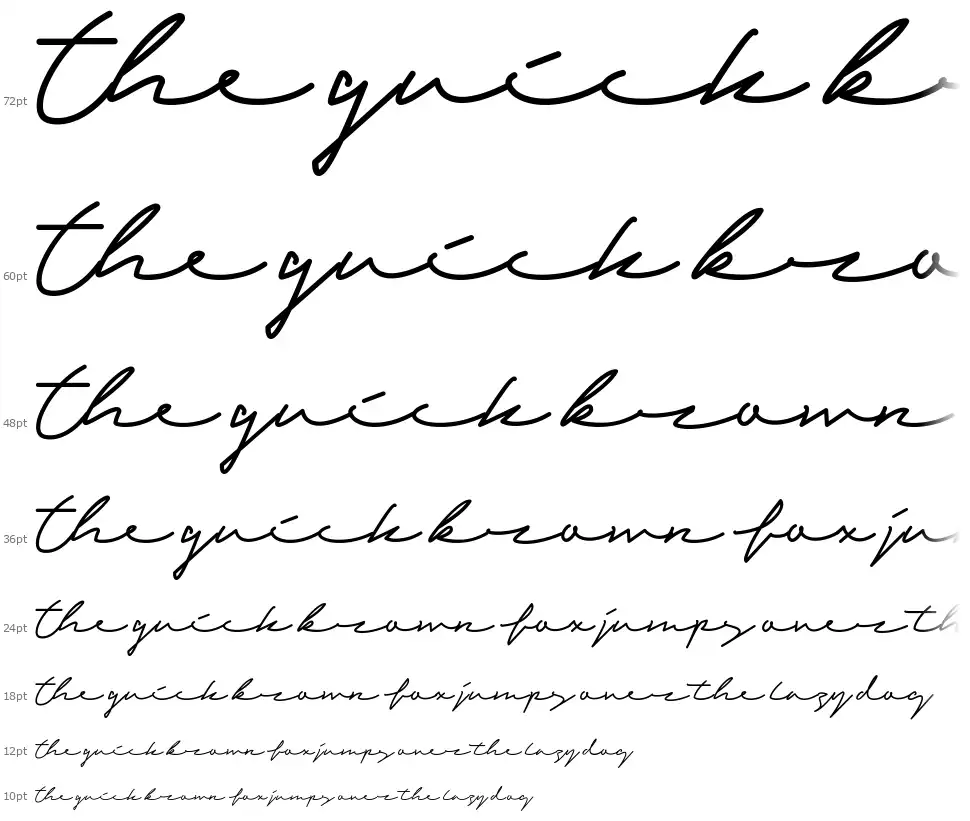 72pt the quick b
60pt the quick bro
48pt the quick brown
36pt the quick brown fox ju
24pt the quick brown fox jumps over th
18pt the quick brown fox jumps over the lazy dog
12pt the quick brown fox jumps over the lazy dog
10pt the quick brown fox jumps over the lazy dog